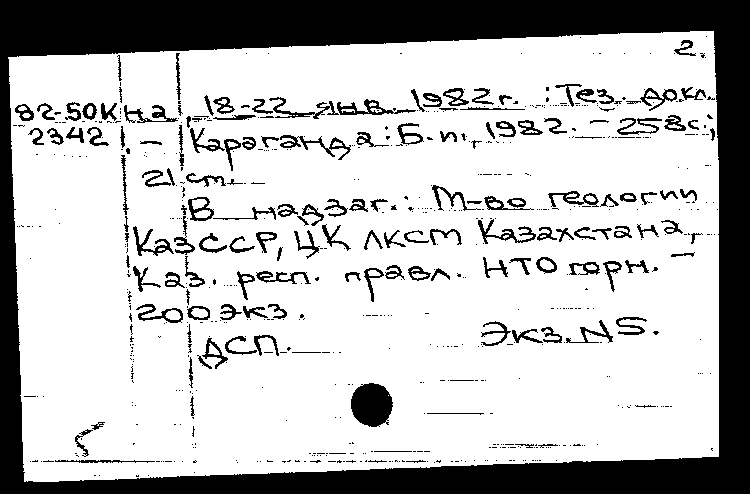 2.
82-50К на, 18-22 янв. 1982г. : Тез. докл.
2342 . - Караганда : Б.и., 1982. - 258с.;
21 см.
В надзаг.: М-во геологии
КазССР, ЦК ЛКСМ Казахстана,
Каз. респ. правл. НТО горн. -
200 экз.
ДСП. Экз. N5.
5